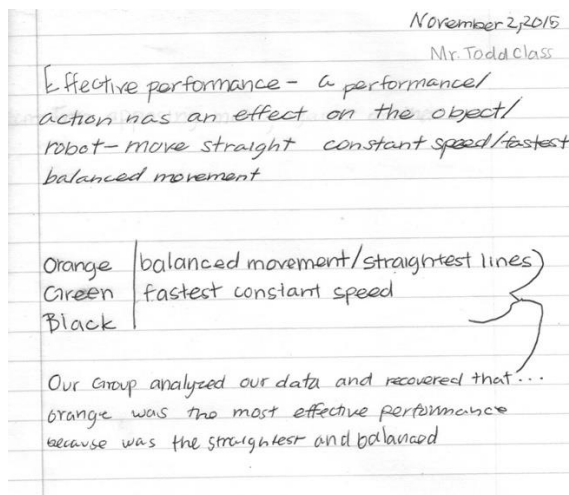 November 2, 2015
Mr. Todd Class
Effective performance - a performance/
action has an effect on the object/
robot - move straight constant speed/fastest
balanced movement
Orange balanced movement/straightest lines
Green fastest constant speed
Black
Our Group analyzed our data and recovered that...
orange was the most effective performance
because was the straightest and balanced